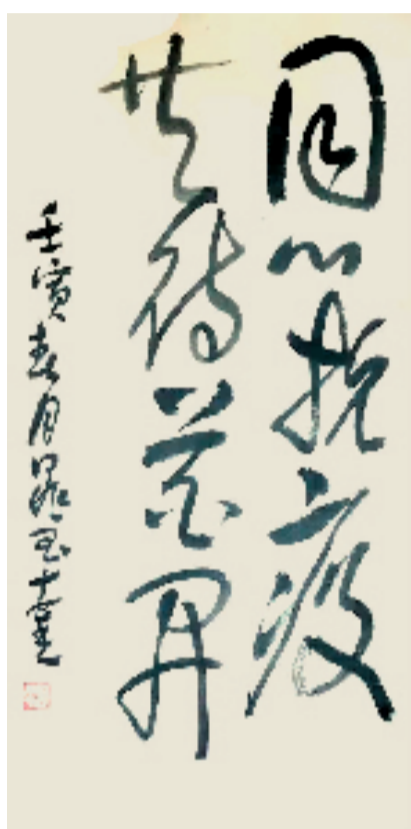 同心抗疫
共待花开
壬寅春月